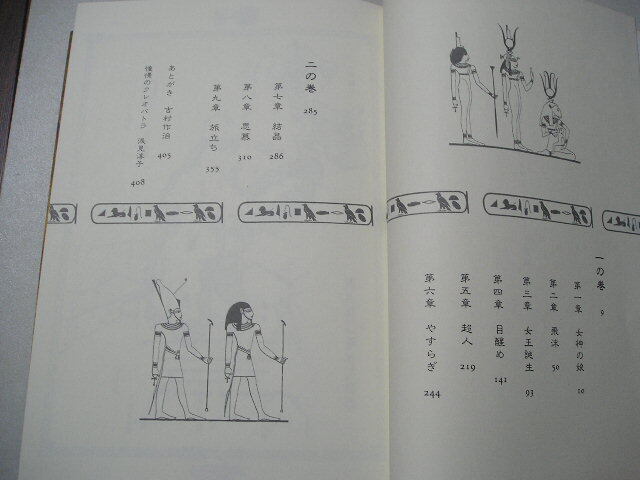 一の巻 9
第一章 女神の娘 10
第二章 飛沫 50
第三章 女王誕生 93
第四章 目醒め 141
第五章 超人 219
第六章 やすらぎ 244
二の巻 285
第七章 結晶 286
第八章 思慕 310
第九章 旅立ち 355
あとがき 吉村作治 405
憧憬のクレオパトラ 浅見洋子 408